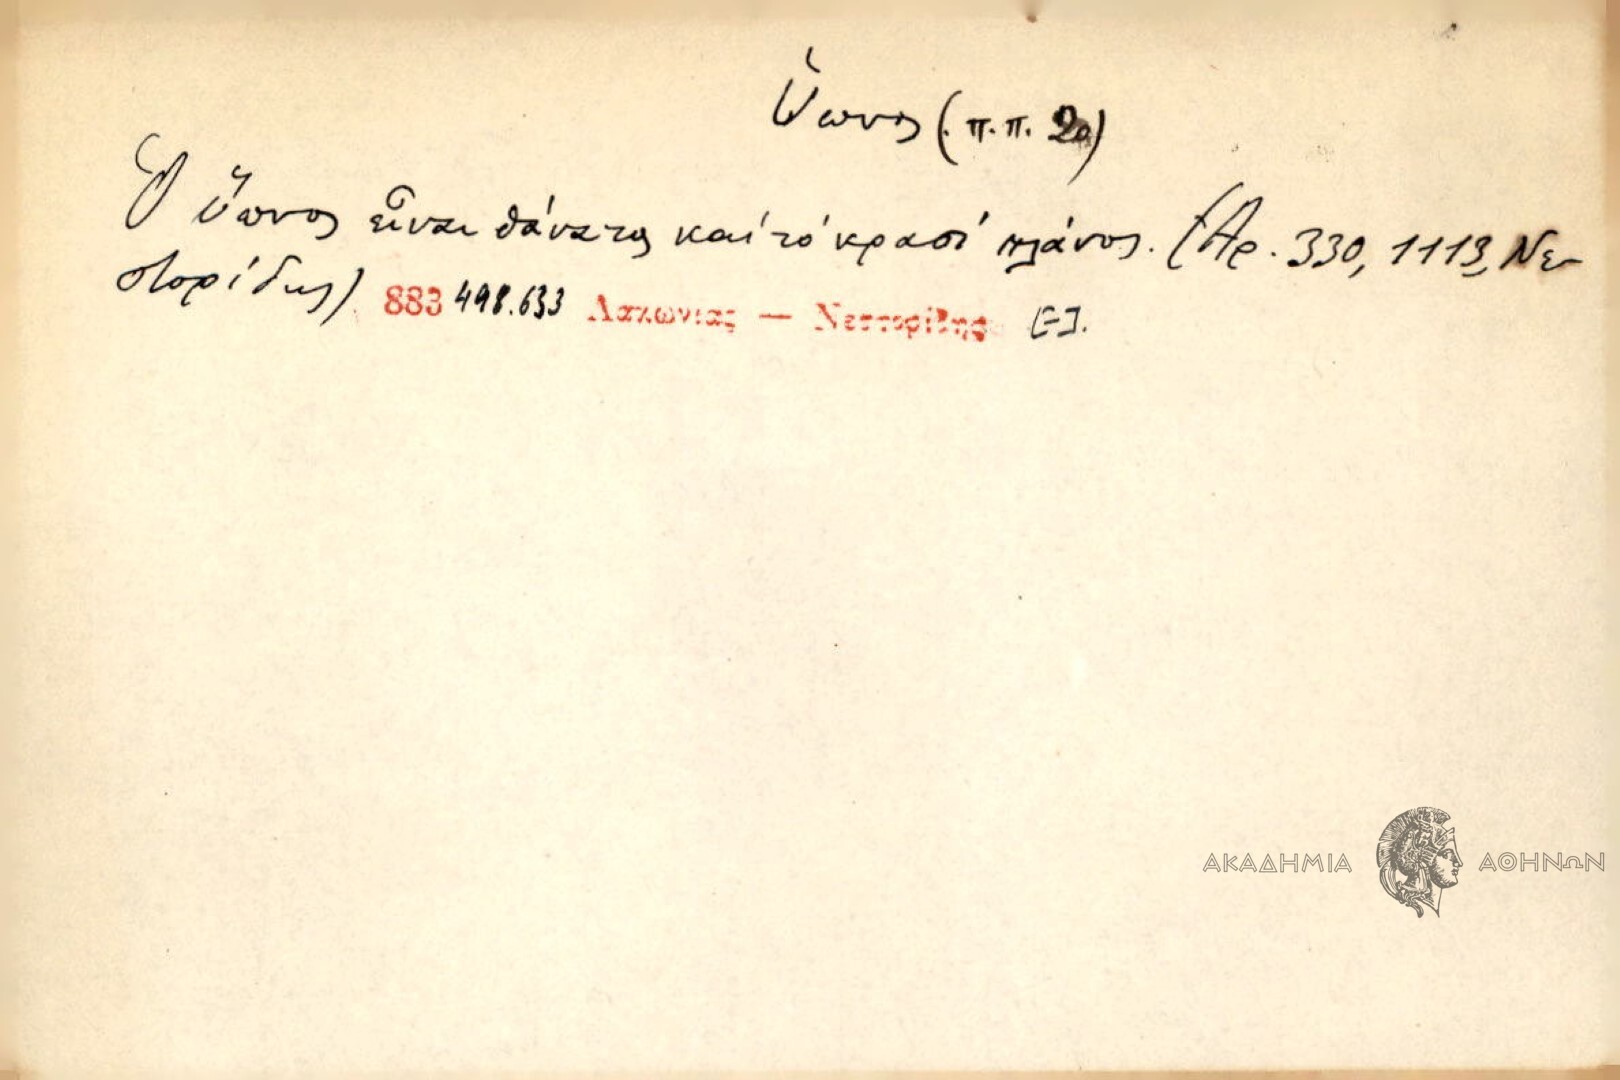 Ὕπνος (π.π. 20)
Ὁ ὕπνος εἶναι θάνατος καί τό κρασί πλάνος. (Αρ. 330, 1113, Νε-
στορίδης) 883 498.633 Λακωνίας — Νεστορίδης [-].
ΑΚΑΔΗΜΙΑ ΑΘΗΝΩΝ